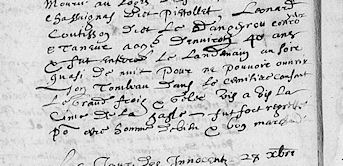 Mourut au logis de
Chassignas dict Pistollet, Leonard
Coutisson dict le
Et Taneur aagé d'environ 40 ans
Et fut enterré le Landemain au soir
quasi de nuit pour ne pouvoir ouvrir
son Tombeau dans le cimitiere causant
le Grand frois & Gelée vis a vis la
Croix de la fut fort regretté
Po estre homme debien & bon marchant
Le Jour des Innocents 28 xbre